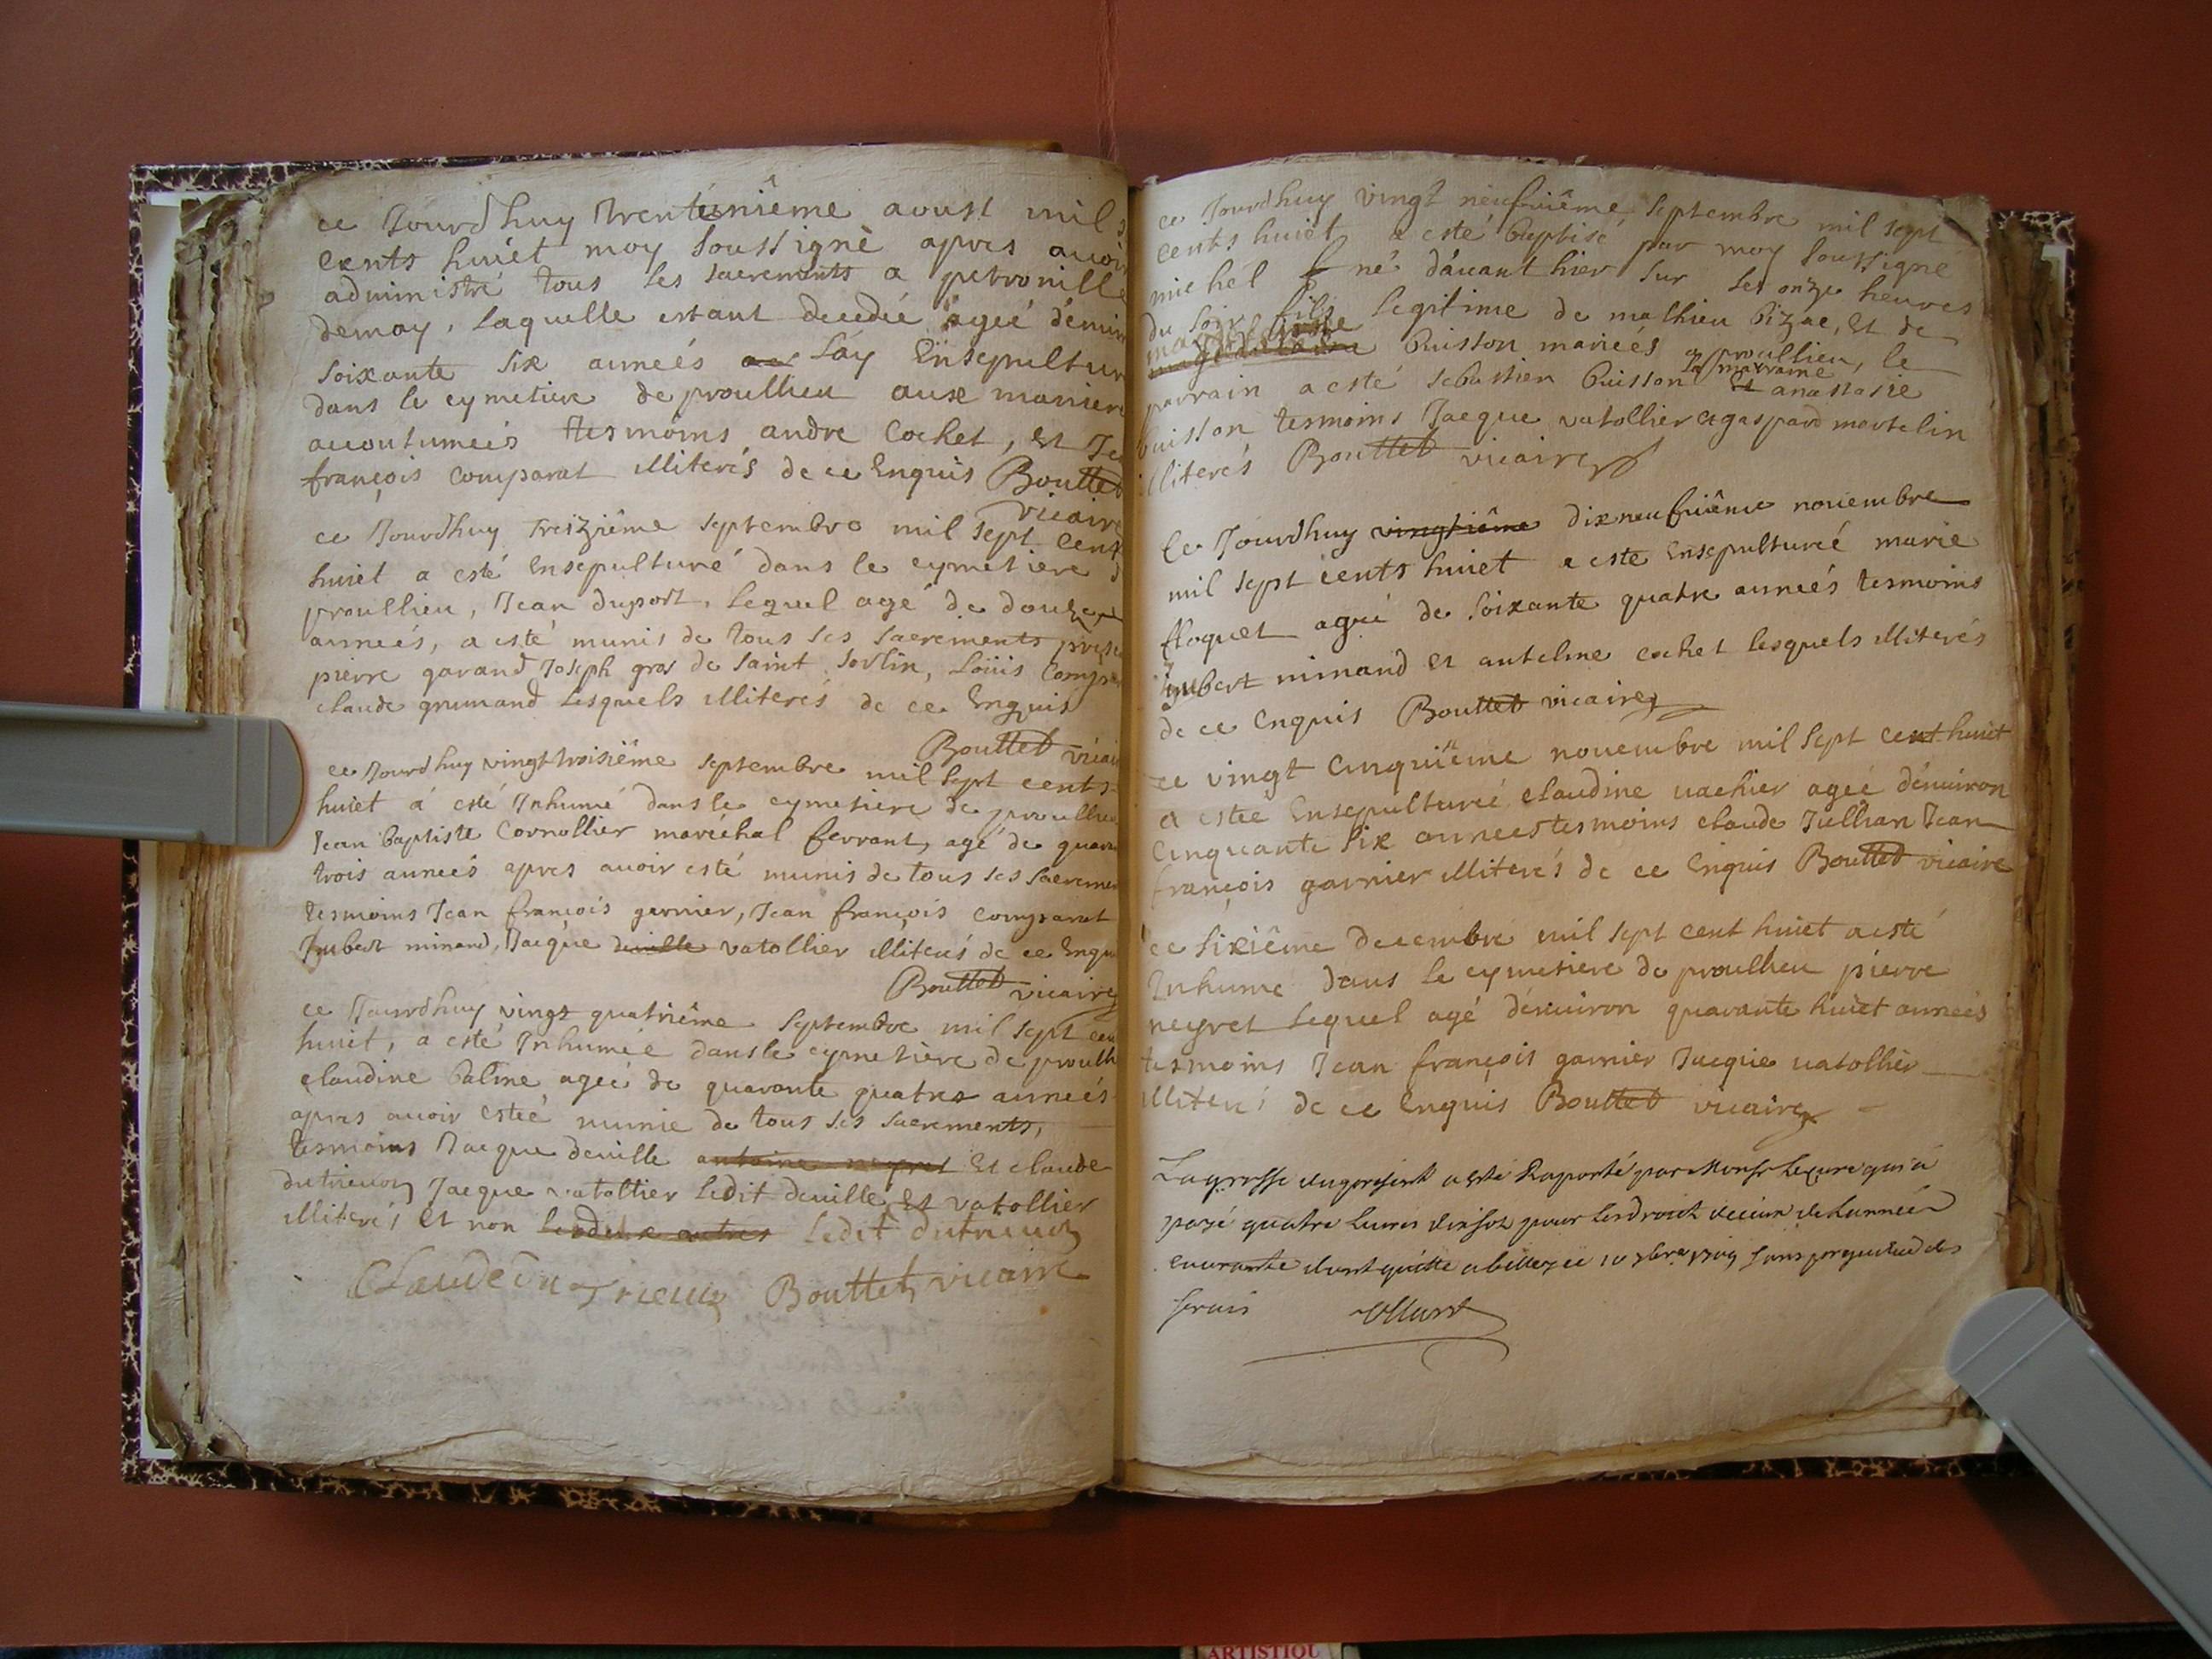 ce Jourdhuy Trentùniême aoust mil s
cents huiét moy soussigné apres auoir
administré tous les sacrements a petronille
demay, laquelle estant decedée ageé démir
soixante six anneés láy Ensepultur
dans le cymetiere de proullieu aux maniere
accoutumeés tesmoins andre Cochet, et Je
françois Comparat illiterés de ce Enquis Bouttet
vicaire
ce Jourdhuy Treiziême septembre mil sept cent
huiet a esté Ensepulturé dans le cymetiere d
proullieu, Jean duport, lequel agé de douze
anneés, a esté munis de tous ses sacrements
pierre garand Joseph gros de saint sorlin, Loüis Compar
claude grumand lesquels illiterés de ce Enquis
Bouttet vicair
ce Jourdhuy vingt troisiême septembre mil sept cents
huiet á esté Inhumé dans le cymetiere de proullieu
Jean baptiste Cornollier maréchal ferrant, agé de quara
trois anneés apres auoir esté munis de tous ses sacremen
tesmoins Jean françois garnier, Jean françois Comparat
Imbert minand, Jacque deuille vatollier illiterés de ce Enqu
Bouttet vicaire
ce Jourdhuy vingt quatriême septembre mil sept cen
huiet, a esté Inhumée dans le cymetière de proulli
claudine balme ageé de quarante quatre anneés
apres auoir esteé munie de tous ses sacrements,
tesmoins Jacque deuille antoine neyret Et claude
dutrieux Jacque vatollier ledit deuille et vatollier
illiterés et non les deux autres ledit dutrieux
Claude du Trieux Bouttet vicaire
ce Jourdhuy vingt neufuiême septembre mil sept
cents huiét a esté baptisé par moy soussigné
michel né dáuant hier sur les onze heures
du soir fils legitime de mathieu bizac, Et de
buisson mariées a proullieu, le
parrain a esté sebastien buisson la marraine Et anastasie
buisson tesmoins Jacque vatollier & gaspard mertelin
illiterés Bouttet vicaire
Ce Jourdhuy vingtiême dixneufuiême nouembre
mil sept cents huiet a este Ensepultureé marie
floquet ageé de soixante quatre anneés tesmoins
Imbert minand et antelme cochet lesquels illiterés
de ce Enquis Bouttet vicaire
ce vingt cinquiême nouembre mil sept cent huiet
a estee Ensepultureé claudine uachier ageé démuiron
cinquante six anneés tesmoins claude Jullian Jean
françois garnier illiterés de ce Enquis Bouttet vicaire
ce sixiême decembre mil sept cent huiet a esté
Inhumé dans le cymetiere de proullieu pierre
neyret lequel agé démuiron quarante huiet anneés
tesmoins Jean françois garnier Jacque uatollier
illiterés de ce Enquis Bouttet vicaire
La grosse du present a esté Raporté par Monsr le curé qui a
payé quatre liures dix sol pour les droit de lannée
courante dont quitte a belley ce 10 1709 sans prejudice des
frais